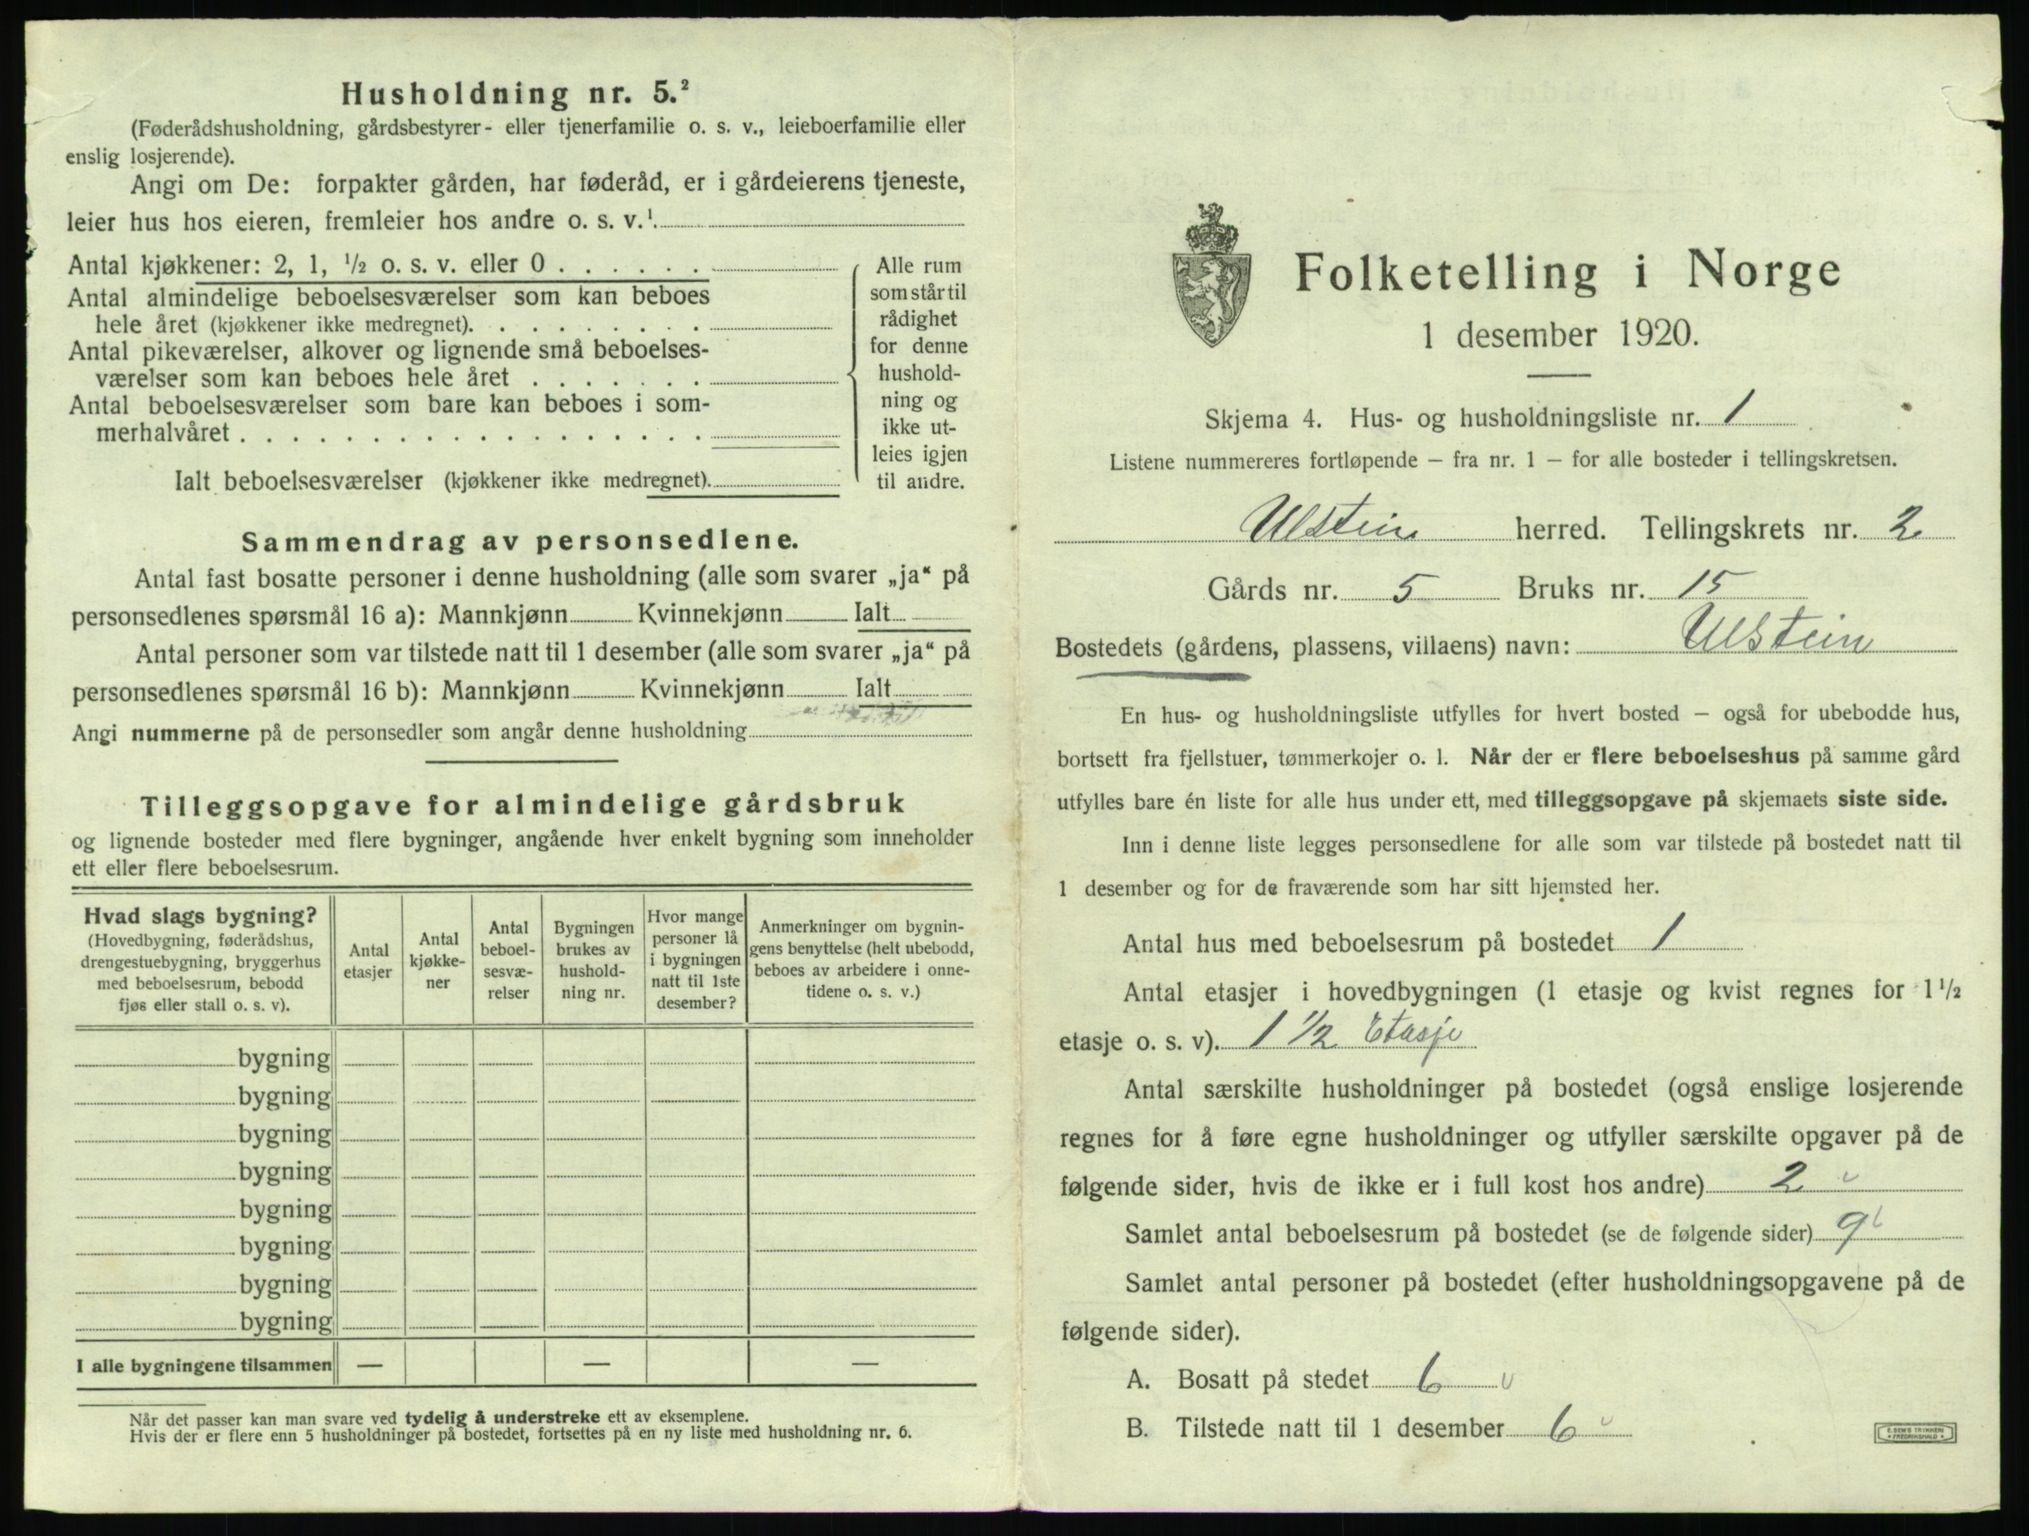 Husholdning nr. 5.²
(Føderådshusholdning, gårdsbestyrer- eller tjenerfamilie o. s. v., leieboerfamilie eller
enslig losjerende).
Angi om De: forpakter gården, har føderåd, er i gårdeierens tjeneste,
leier hus hos eieren, fremleier hos andre o. s. v.¹
Antal kjøkkener: 2, 1, ½ o. s. v. eller 0 . . . . . .
Antal almindelige beboelsesværelser som kan beboes
hele året (kjøkkener ikke medregnet). . . . . . . . . .
Antal pikeværelser, alkover og lignende små beboelses-
værelser som kan beboes hele året . . . . . . .
Antal beboelsesværelser som bare kan beboes i som-
merhalvåret . . . . . . . . . . . . . . . . . .
Ialt beboelsesværelser (kjøkkener ikke medregnet).
Alle rum
som står til
rådighet
for denne
hushold-
ning og
ikke ut-
leies igjen
til andre.
Sammendrag av personsedlene.
Antal fast bosatte personer i denne husholdning (alle som svarer „ja“ på
personsedlenes spørsmål 16 a): Mannkjønn Kvinnekjønn Ialt
Antal personer som var tilstede natt til 1 desember (alle som svarer „ja“ på
personsedlenes spørsmål 16 b): Mannkjønn Kvinnekjønn Ialt
Angi nummerne på de personsedler som angår denne husholdning
Tilleggsopgave for almindelige gårdsbruk
og lignende bosteder med flere bygninger, angående hver enkelt bygning som inneholder
ett eller flere beboelsesrum.
Hvad slags bygning?
(Hovedbygning, føderådshus,
drengestuebygning, bryggerhus
med beboelsesrum, bebodd
fjøs eller stall o. s. v).
Antal
etasjer
Antal
kjøkke-
ner
Antal
beboel-
sesvæ-
relser
Bygningen
brukes av
hushold-
ning nr.
Hvor mange
personer lå
i bygningen
natt til 1ste
desember?
Anmerkninger om bygnin-
gens benyttelse (helt ubebodd,
beboes av arbeidere i onne-
tidene o. s. v.)
bygning
bygning
bygning
bygning
bygning
bygning
bygning
bygning
I alle bygningene tilsammen — — —
Når det passer kan man svare ved tydelig å understreke ett av eksemplene.
Hvis der er flere enn 5 husholdninger på bostedet, fortsettes på en ny liste med husholdning nr. 6.
Folketelling i Norge
1 desember 1920.
Skjema 4. Hus- og husholdningsliste nr. 1
Listene nummereres fortløpende — fra nr. 1 — for alle bosteder i tellingskretsen.
Ulstein herred. Tellingskrets nr. 2
Gårds nr. 5 Bruks nr. 15
Bostedets (gårdens, plassens, villaens) navn: Ulstein
En hus- og husholdningsliste utfylles for hvert bosted — også for ubebodde hus,
bortsett fra fjellstuer, tømmerkojer o. l. Når der er flere beboelseshus på samme gård
utfylles bare én liste for alle hus under ett, med tilleggsopgave på skjemaets siste side.
Inn i denne liste legges personsedlene for alle som var tilstede på bostedet natt til
1 desember og for de fraværende som har sitt hjemsted her.
Antal hus med beboelsesrum på bostedet 1
Antal etasjer i hovedbygningen (1 etasje og kvist regnes for 1½
etasje o. s. v). 1 1/2 Etasje
Antal særskilte husholdninger på bostedet (også enslige losjerende
regnes for å føre egne husholdninger og utfyller særskilte opgaver på de
følgende sider, hvis de ikke er i full kost hos andre) 2
Samlet antal beboelsesrum på bostedet (se de følgende sider) 9
Samlet antal personer på bostedet (efter husholdningsopgavene på de
følgende sider).
A. Bosatt på stedet 6
B. Tilstede natt til 1 desember 6
E. SEM'S TRYKKERI
FREDRIKSHALD